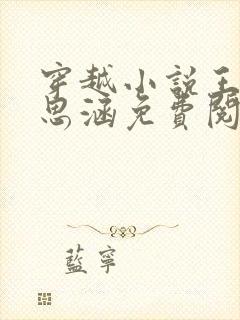 穿越小說王
思涵免費閱
藍寧